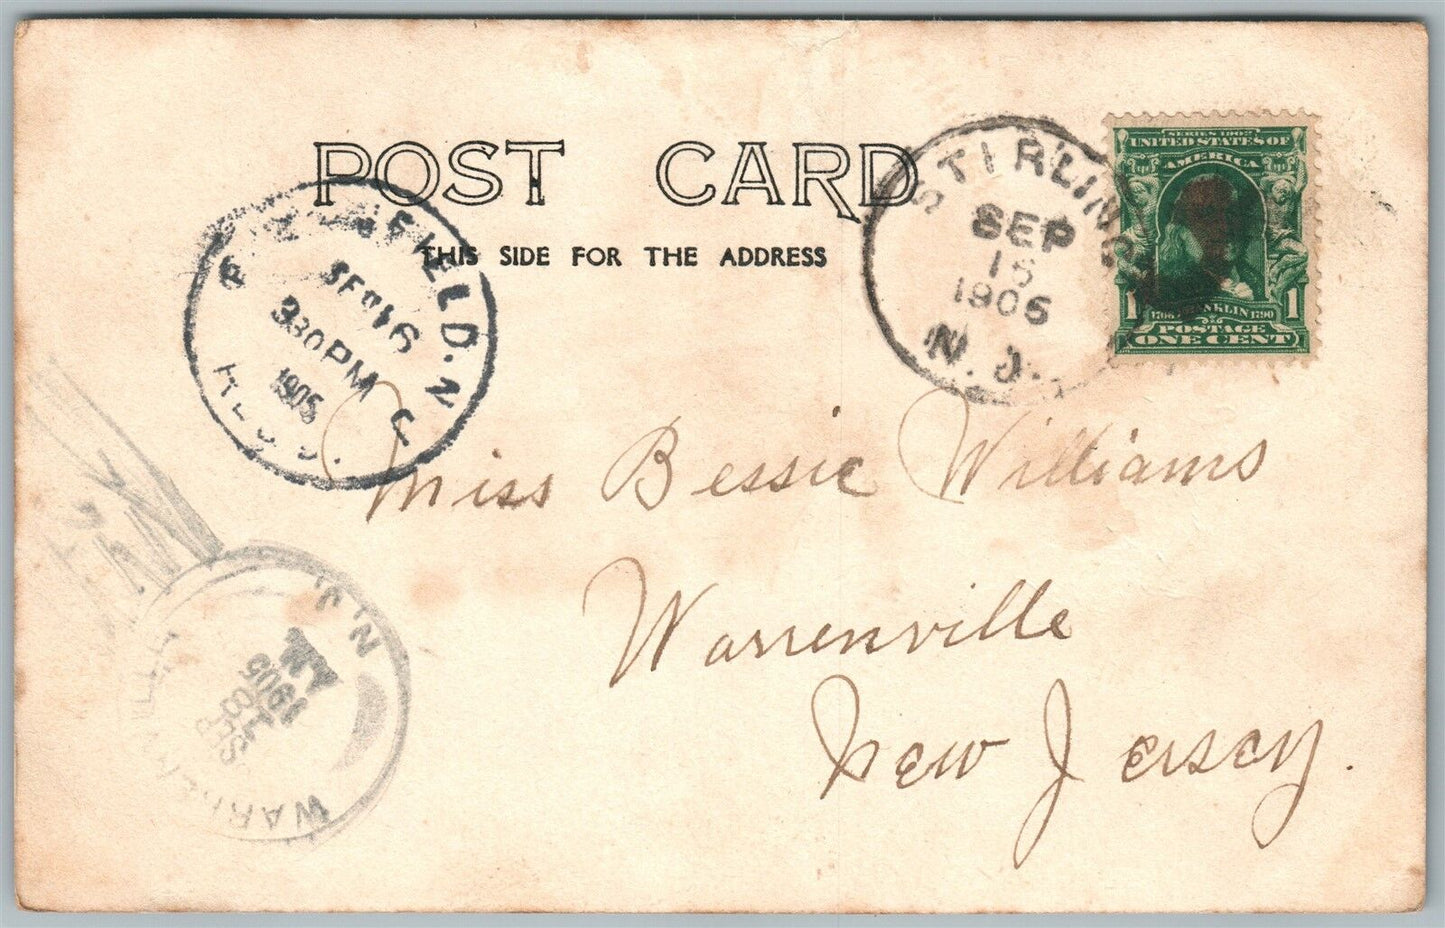 POST CARD
THIS SIDE FOR THE ADDRESS
STIRLING
SEP
15
1905
N.J.
SERIES 1902
UNITED STATES OF
AMERICA
1 FRANKLIN 1790 1
POSTAGE
ONE CENT
FIELD. N
SEP 16
330 PM
1905
REC'D.
Miss Bessie Williams
Warrenville
New Jersey.
WARRENVILLE
N.J.
SEP
18
1905
AM